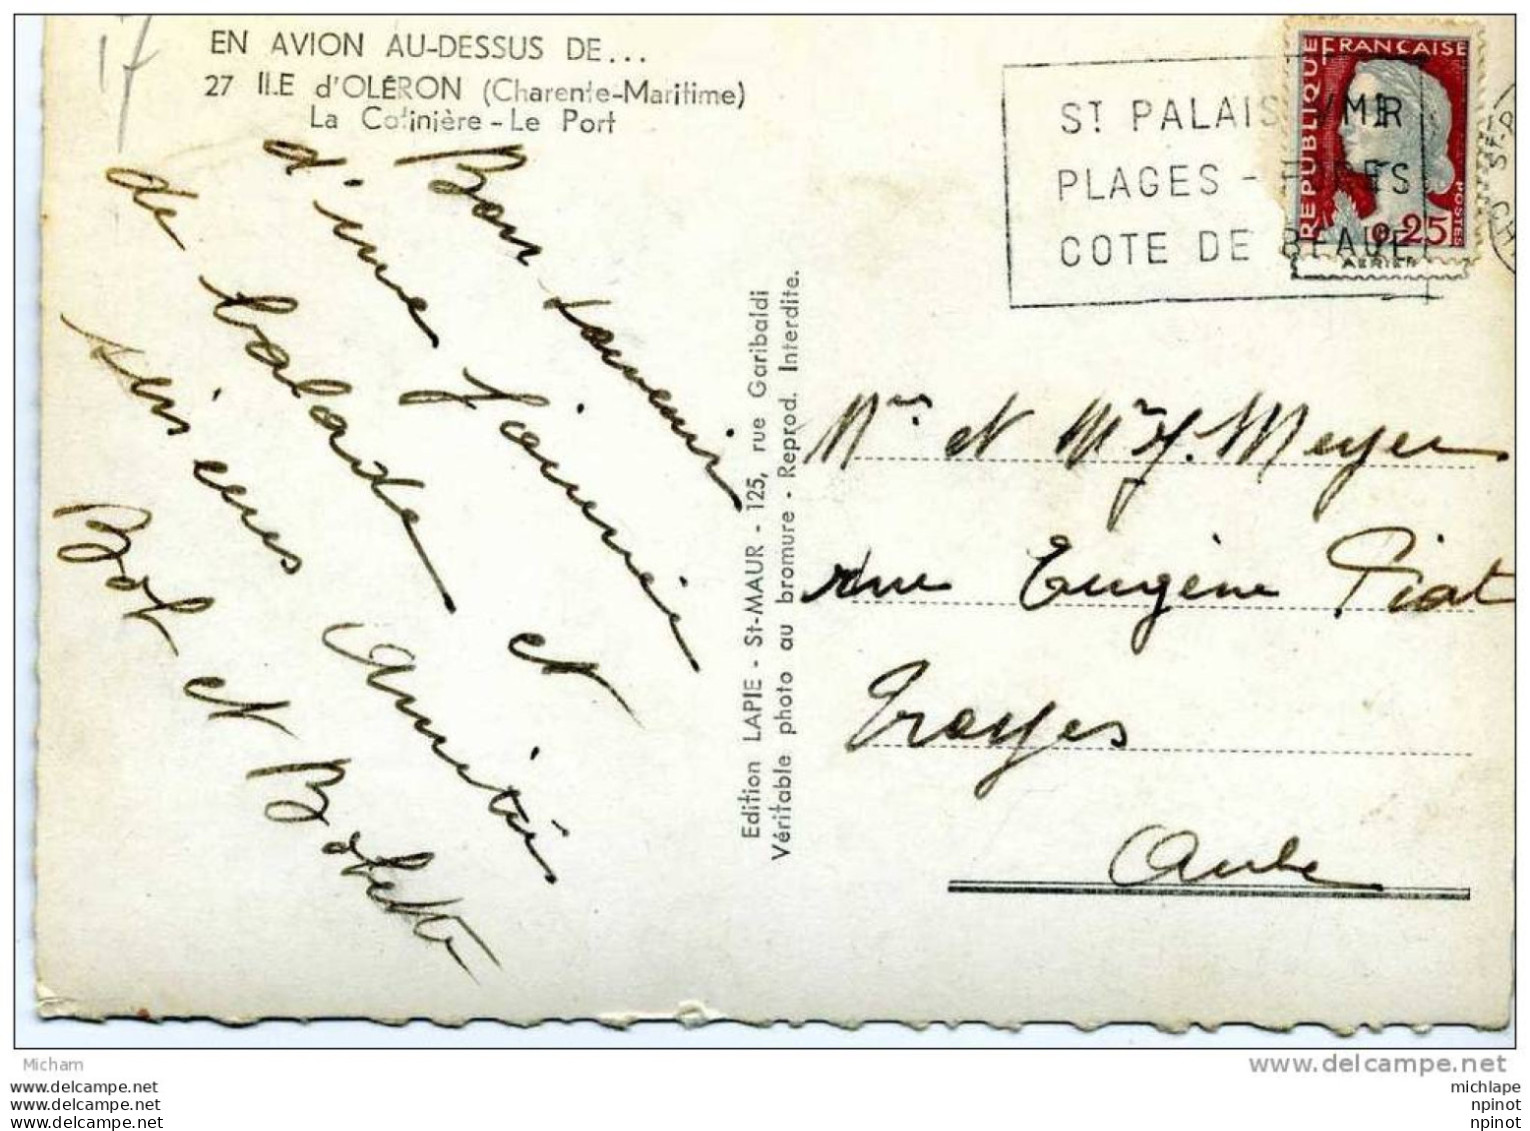 17
EN AVION AU-DESSUS DE...
27 ILE d'OLÉRON (Charente-Maritime)
La Cotinière - Le Port
Bon souvenir
d'une journée
de balade et
sincères amitiés
Bob et Babette
Edition LAPIE - St-MAUR - 125, rue Garibaldi
Véritable photo au bromure - Reprod. Interdite.
ST PALAIS S/MER
PLAGES -
COTE DE BEAUTE
REPUBLIQUE FRANÇAISE
POSTES
0,25
AERIEN
Mme et Mr Meyer
rue Eugène Piat
Troyes
Aube
Micham
www.delcampe.net
www.delcampe.net
www.delcampe.net
www.delcampe.net
michlape
npinot
npinot